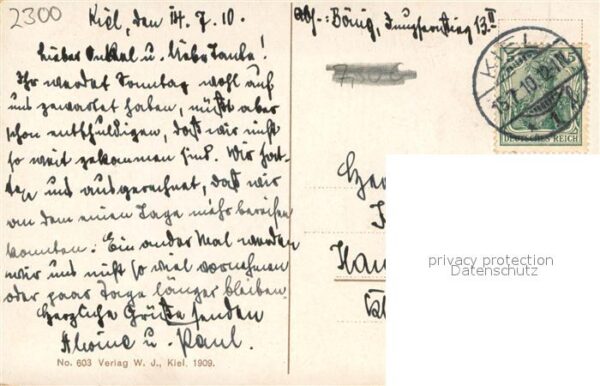 2300
Kiel, den 14. 7. 10.
Lieber Onkel u. liebe Tante!
Ihr werdet Sonntag wohl auf
uns gewartet haben, müßt aber
schon entschuldigen, daß wir nicht
so weit gekommen sind. Wir hat-
ten uns ausgerechnet, daß wir
an dem einen Tage mehr bereisen
konnten. Ein ander Mal werden
wir uns nicht so viel vornehmen
oder paar Tage länger bleiben.
Herzliche Grüße senden
Alwine u. Paul.
No. 603 Verlag W. J., Kiel. 1909.
Abs.: Bönig, Jungfernstieg 13 II
KIEL
15.7.10.
DEUTSCHES REICH
privacy protection
Datenschutz